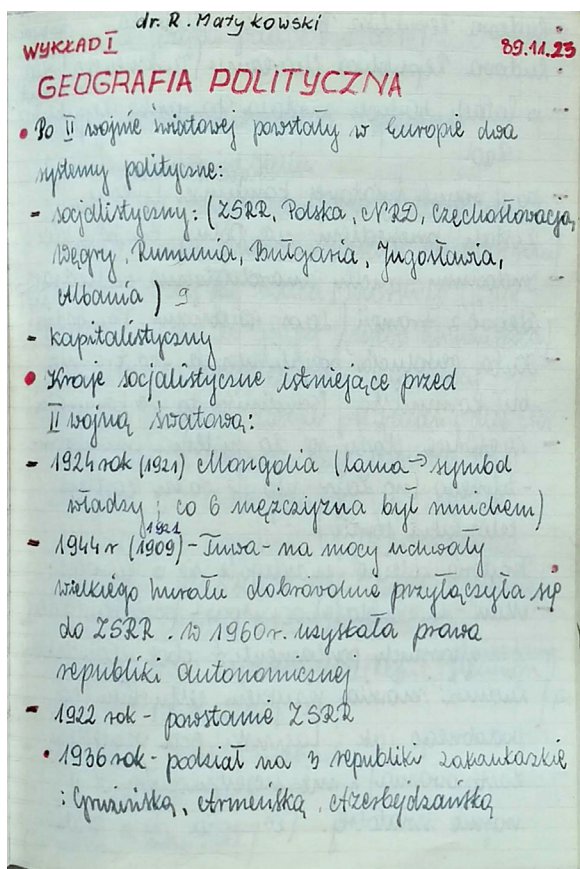 dr. R. Matykowski
WYKŁAD I
89.11.23
GEOGRAFIA POLITYCZNA
• Po II wojnie światowej powstały w Europie dwa
systemy polityczne:
- socjalistyczny: (ZSRR, Polska, NRD, Czechosłowacja,
Węgry, Rumunia, Bułgaria, Jugosławia,
Albania) 9
- kapitalistyczny
• Kraje socjalistyczne istniejące przed
II wojną światową:
- 1924 rok (1921) Mongolia (lama → symbol
władzy; co 6 mężczyzna był mnichem)
1921
- 1944 r (1909) - Tuwa - na mocy uchwały
wielkiego hurału dobrowolnie przyłączyła się
do ZSRR. W 1960r. uzyskała prawa
republiki autonomicznej
- 1922 rok - powstanie ZSRR
• 1936 rok - podział na 3 republiki zakaukaskie
: Gruzińską, Armeńską, Azerbejdżańską